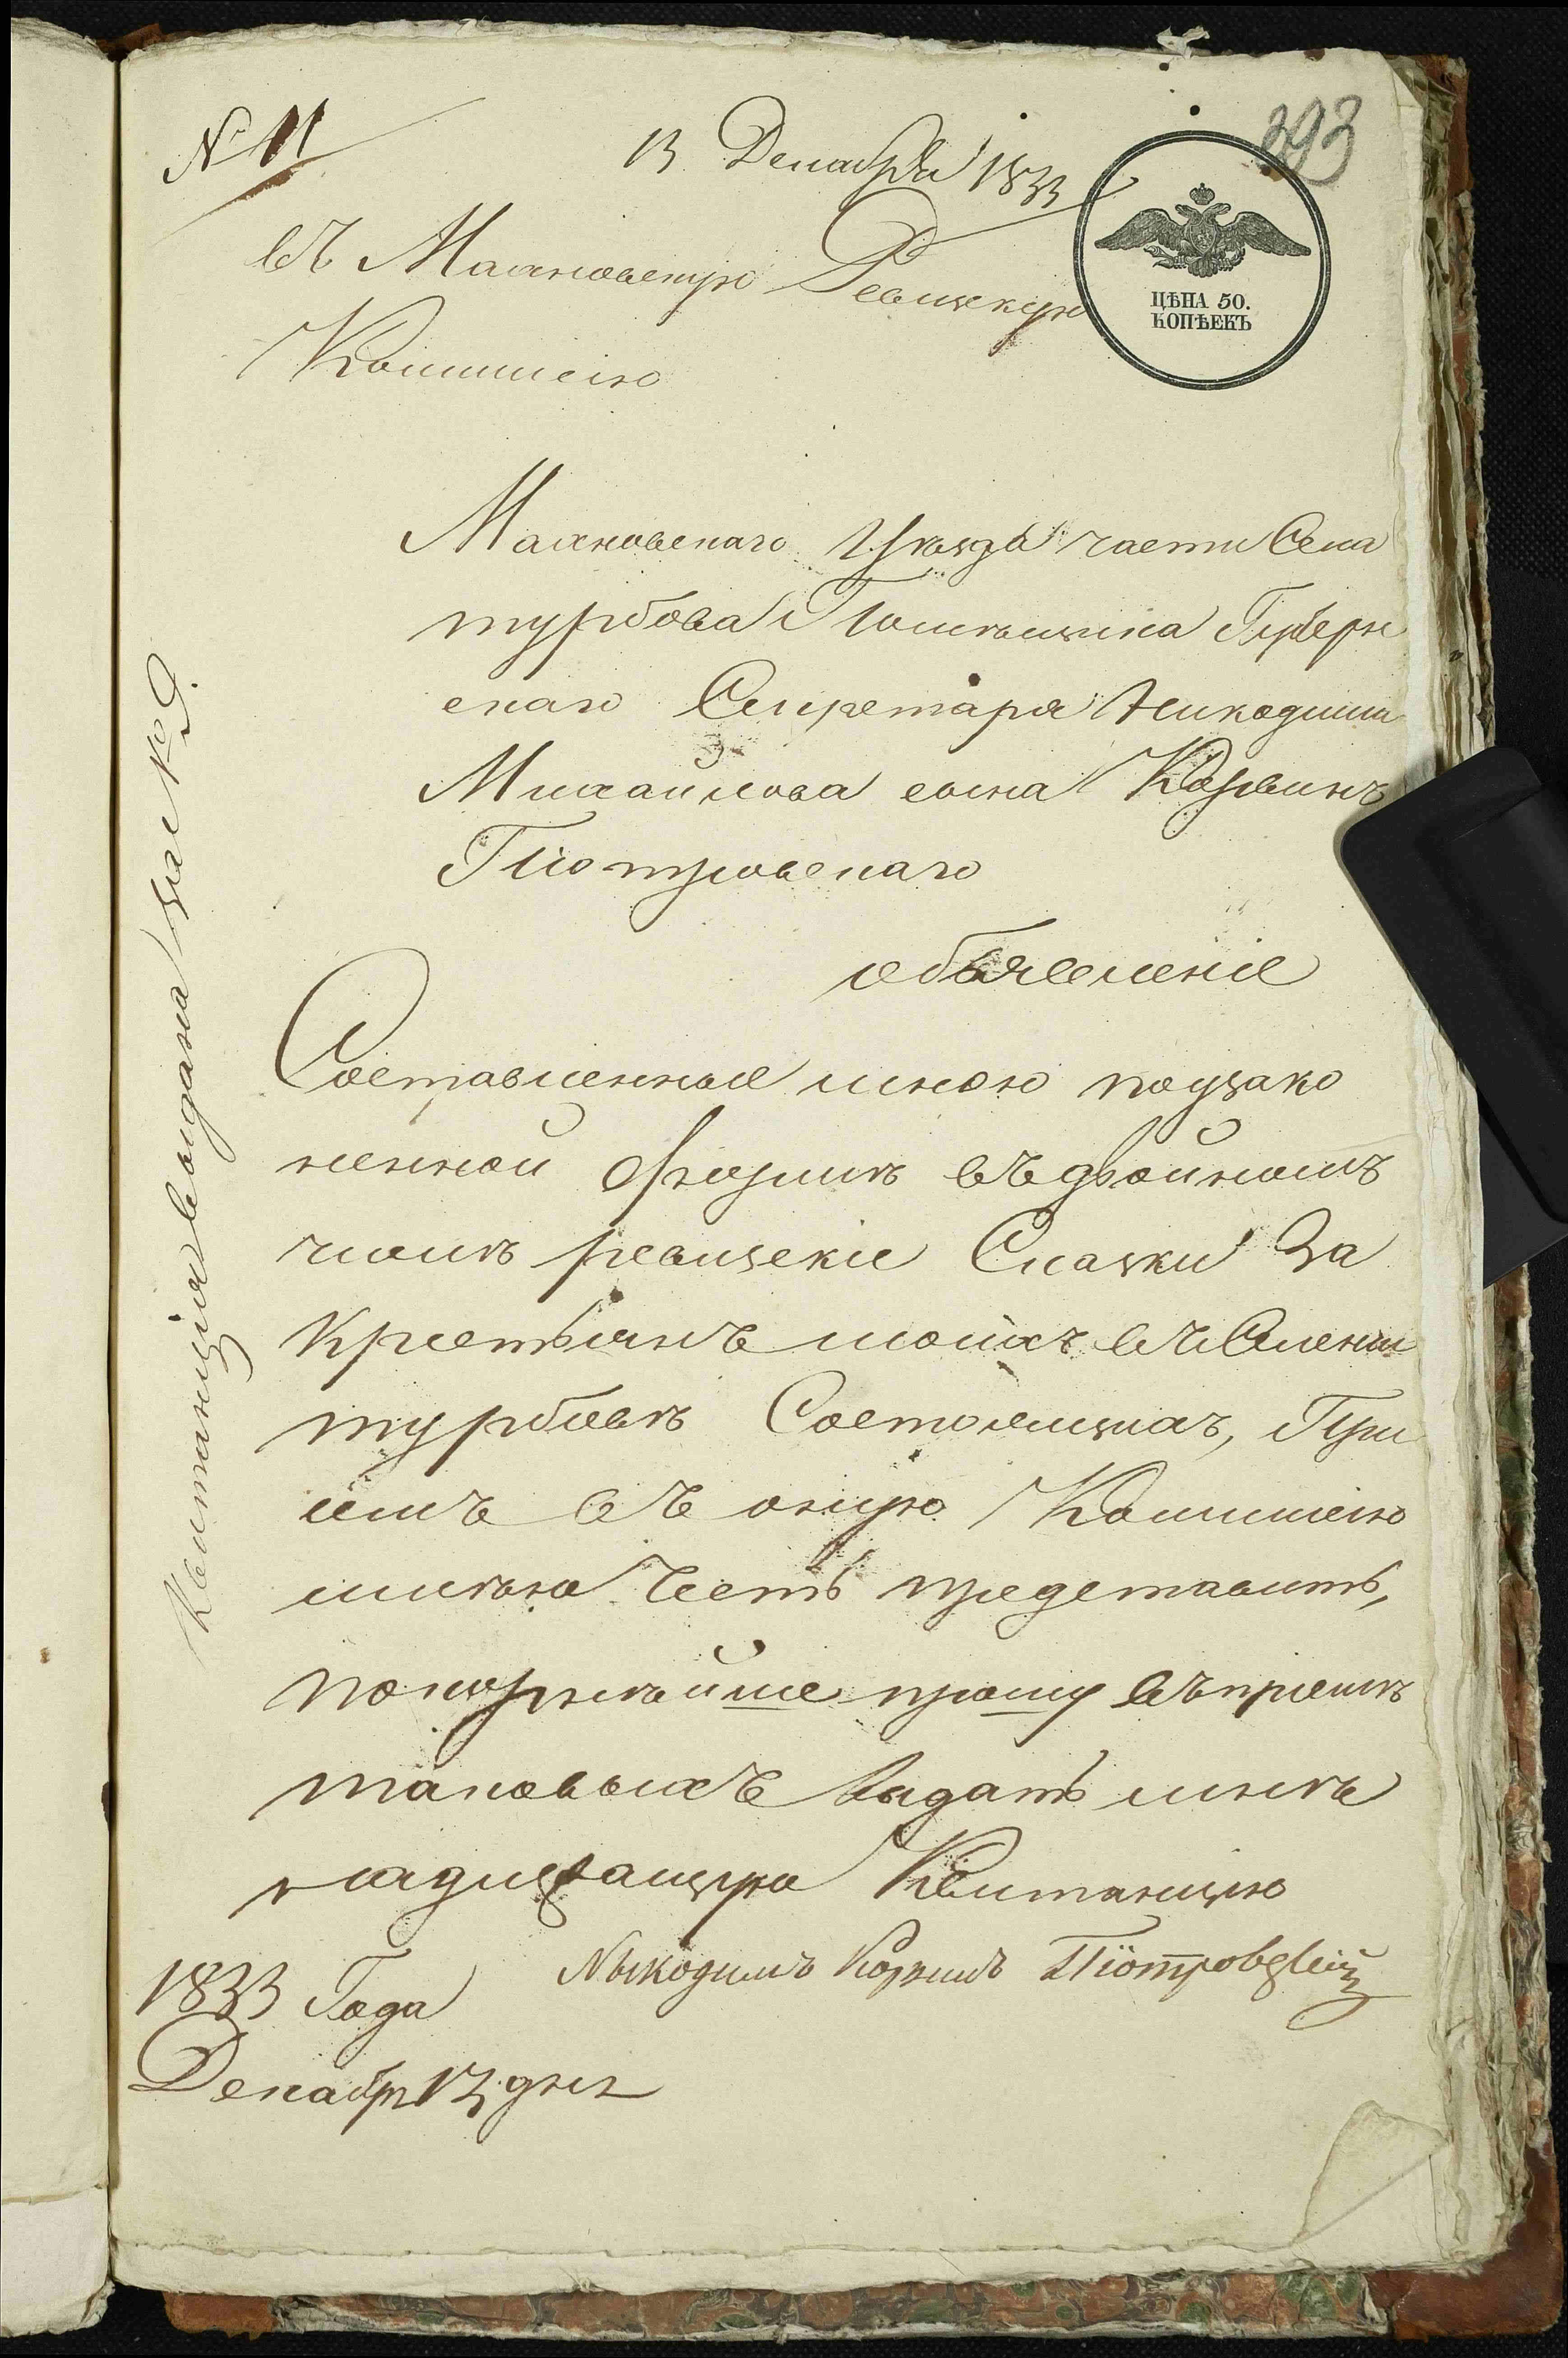 № 11
13 Декабря 1833
393
въ Махновскую Ревизскую
Коммисію
ЦѢНА 50.
КОПѢЕКЪ
Махновскаго Уѣзда части Села
турбова Помѣщика Губерн
скаго Секретаря Никодима
Михайлова сына Корвинъ
Піотровскаго
объявленіе
Составленные мною поузако
ненной Формѣ въ двойномъ
числѣ ревизскіе Сказки За
Крестьянъ моихъ въ Селеніи
турбовѣ Состоящихъ, При
семъ въ оную Коммисію
имѣю Честь представить,
покорнѣйше прошу въ пріемѣ
таковыхъ выдать мнѣ
надлежащую Квитанцію
Никодимъ Корвинъ Піотровскій
1833 Года
Декабря 13 дня
Квитанція выдана за № 9.